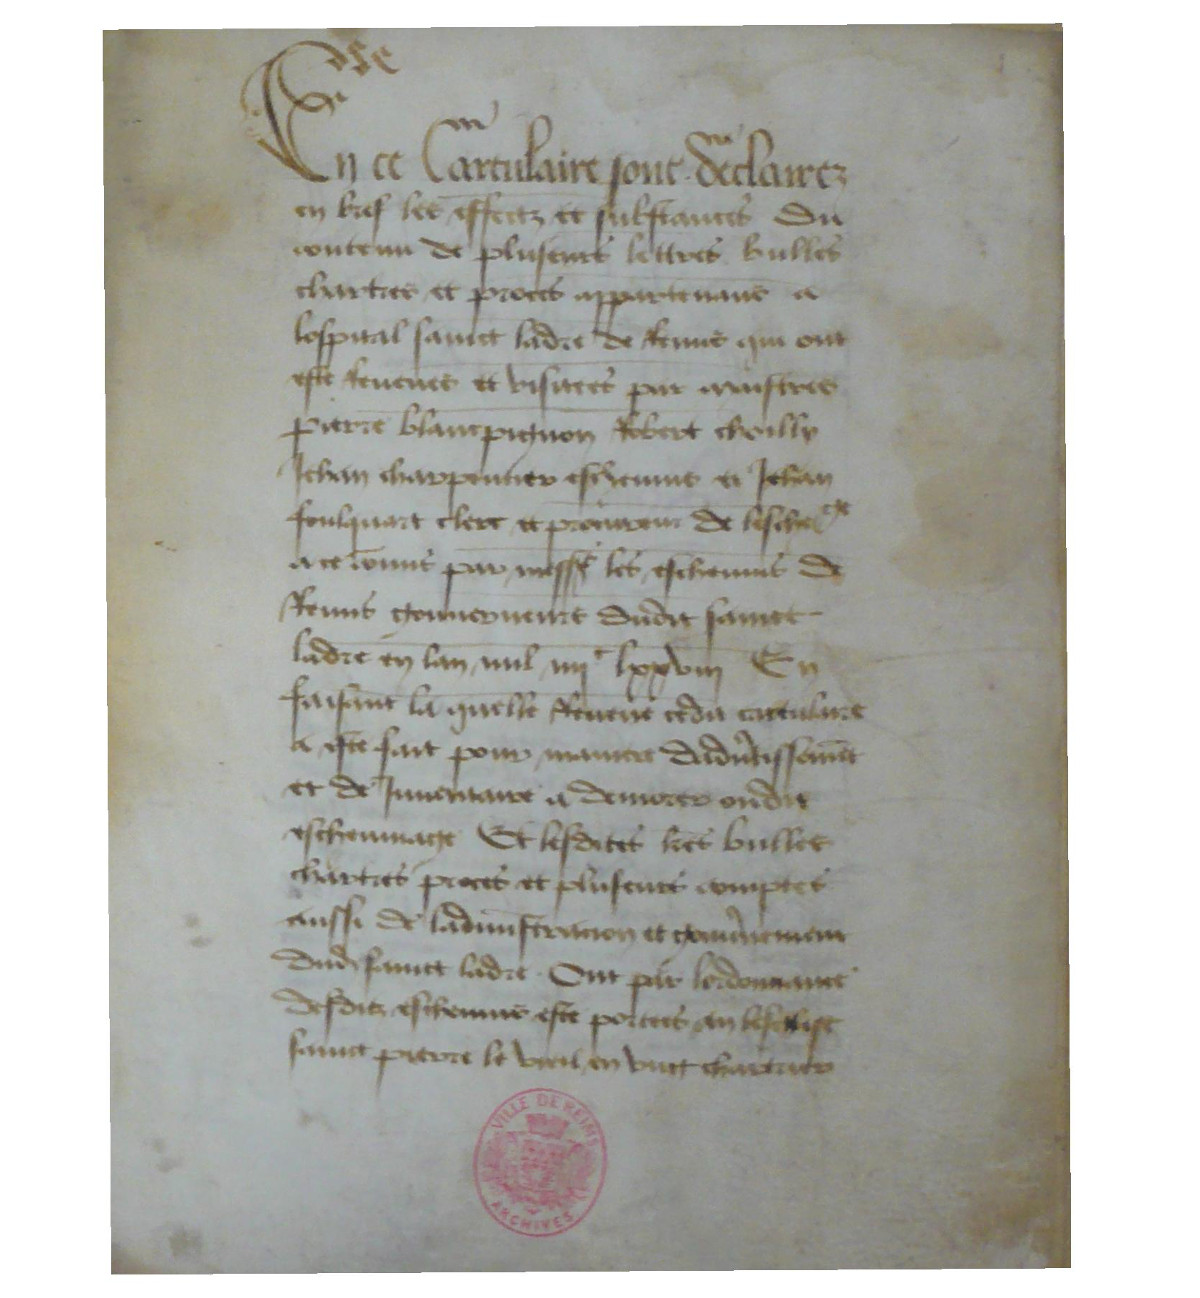 En ce Cartulaire sont declairez
en bref les effectz et substances du
contenu de pluseurs lettres bulles
chartres et proces appartenans a
lospital sainct ladre de Reims qui ont
este Reveues et visitees par maistres
pierre blancpignon Robert choilly
Jehan charpentier eschevins et Jehan
foulquart clerc et procureur de lesche
a ce commis par mess les eschevins de
Reims gouverneurs dudit sainct
ladre en lan mil iiiic lxxviii En
faisant la quelle Reveue cedit cartulaire
a este fait pour maniere dadvtissemt
et de Inventaire a demorer oudit
eschevinage Et lesdites lres bulles
chartres proces et pluseurs comptes
aussi de ladministracion et gouvnement
dudit sainct ladre Ont par lordonnance
desditz eschevins este portees en leglise
sainct pierre le vieil en ung chartrier
VILLE DE REIMS
ARCHIVES